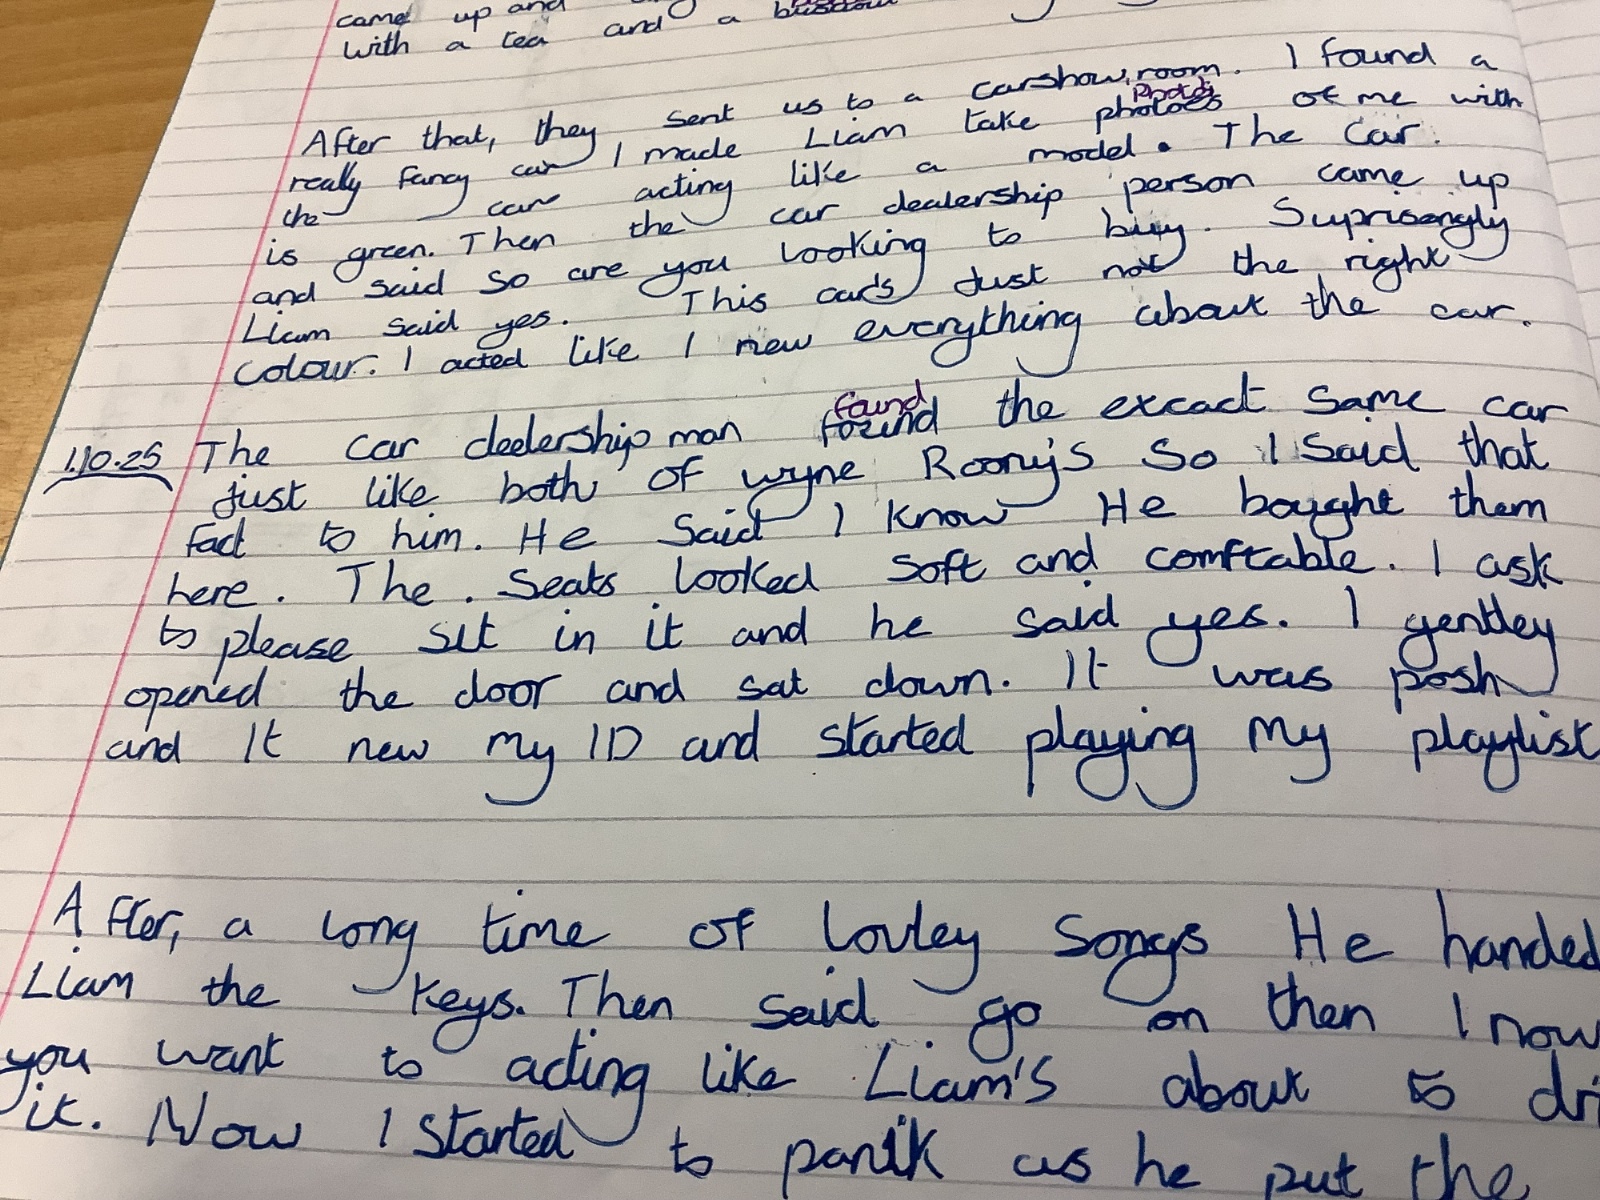 came up and
with a tea and a
After that, they sent us to a carshow room. I found a
really fancy car I made Liam take photoes photos of me with
the car acting like a model. The Car
is green. Then the car dealership person came up
and said so are you looking to buy. Suprisengly
Liam said yes. This cars Just not the right
colour. I acted like I new everything about the car.
1.10.25 The car deelership man found found the excact same car
Just like both of wyne Roony's so I said that
fact to him. He said I know He bought them
here. The. Seats looked soft and comftable. I ask
to please sit in it and he said yes. I gentley
opened the door and sat down. It was posh
and It new my ID and started playing my playlist
After, a long time of lovley songs He handed
Liam the keys. Then said go on then I now
you want to acting like Liam's about to dri
it. Now I started to panik as he put the